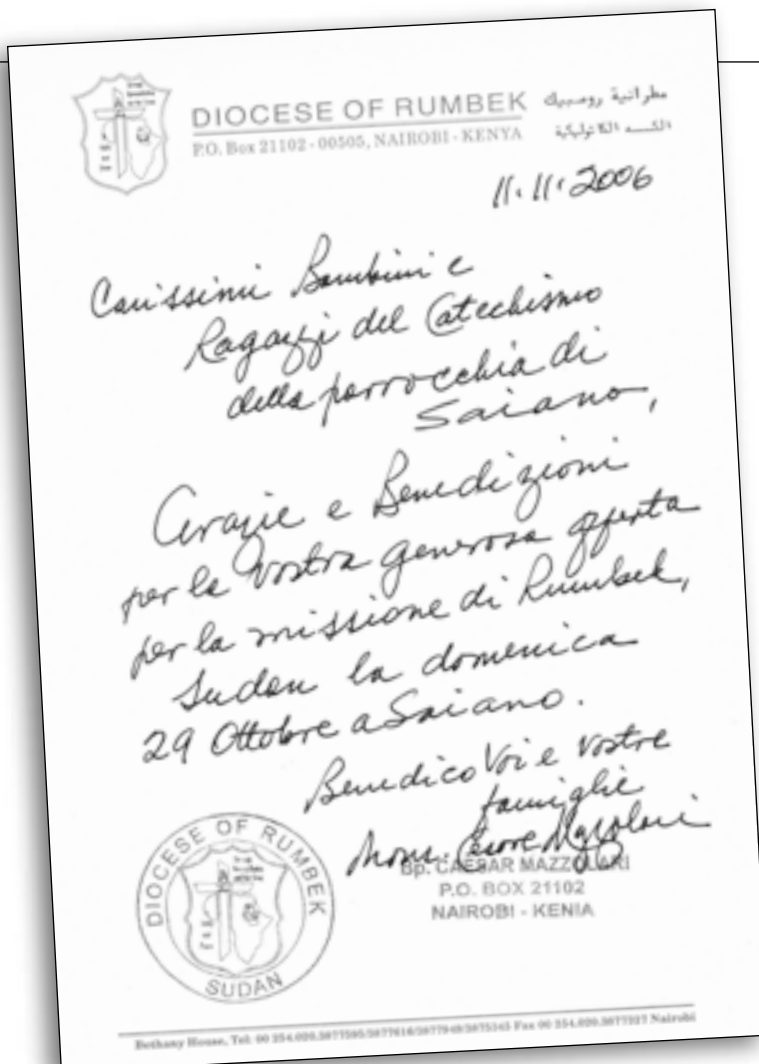 DIOCESE OF RUMBEK
مطرانية رومبيك
P.O. Box 21102 - 00505, NAIROBI - KENYA
11.11.2006
Carissimi Bambini e
Ragazzi del Catechismo
della parrocchia di
Saiano,
Grazie e Benedizioni
per la vostra generosa offerta
per la missione di Rumbek,
Sudan la domenica
29 Ottobre a Saiano.
Benedico Voi e vostre
famiglie
Mons. Cesare Mazzolari
Bp. CAESAR MAZZOLARI
P.O. BOX 21102
NAIROBI - KENIA
DIOCESE OF RUMBEK
SUDAN
Bethany House, Tel: 00 254.020. Fax 00 254.020.3877327 Nairobi